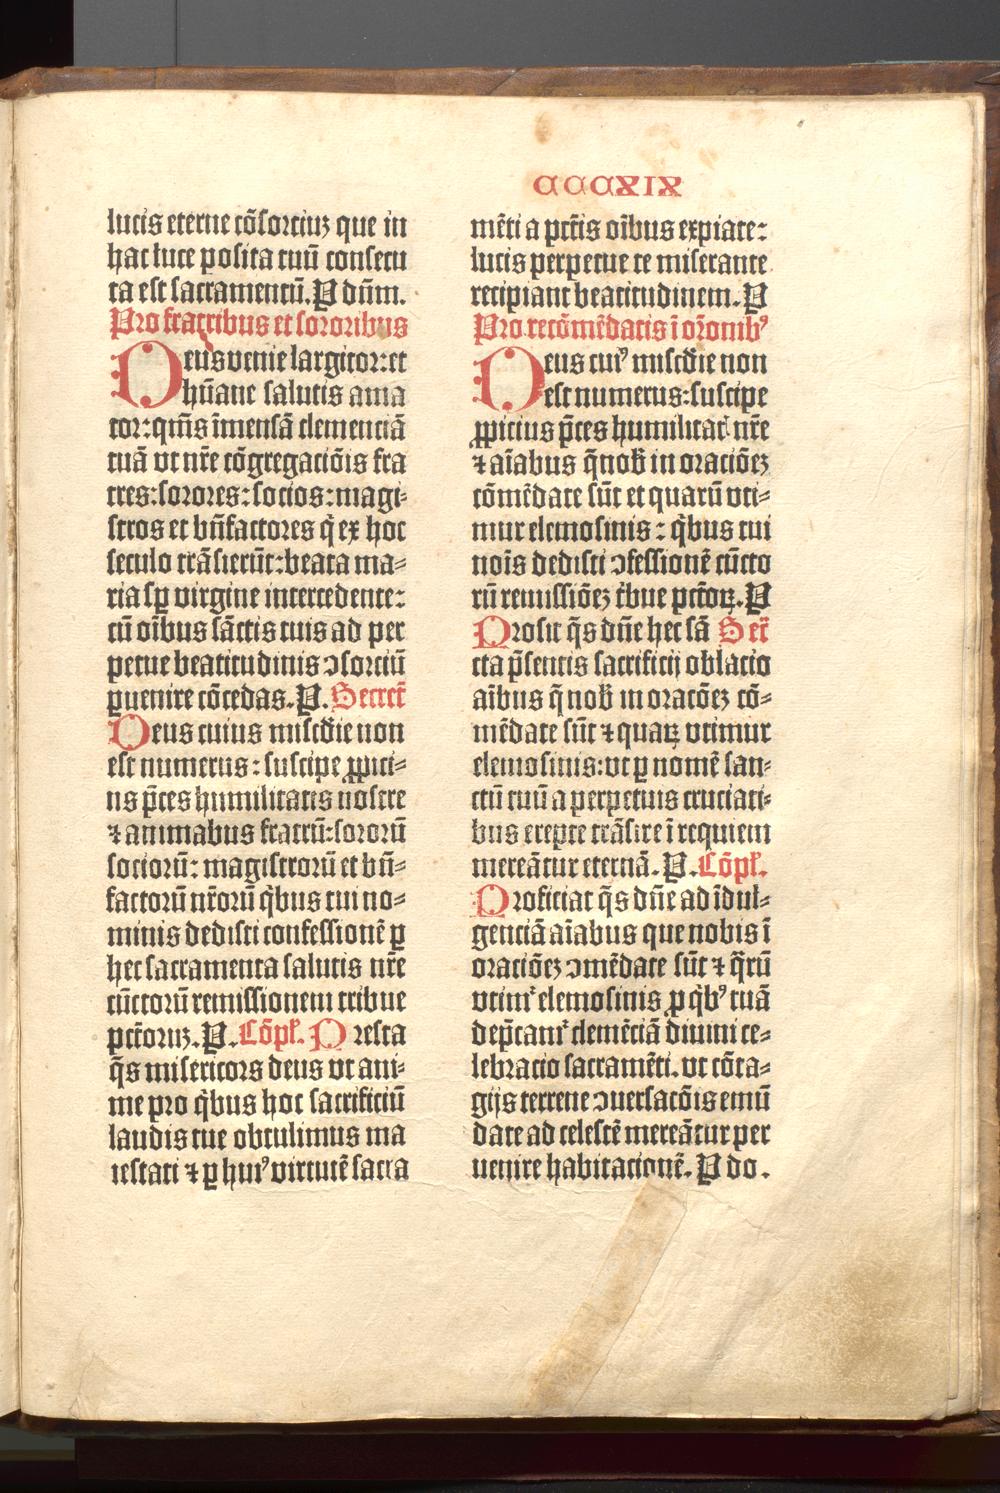 CCCXIX
lucis eterne cõsorciuꝫ que in
hac luce posita tuũ consecu
ta est sacramentũ. P dñm.
Pro fratribus et sororibus
Deus venie largitor: et
hũane salutis ama
tor: qm̃s ĩmensã clemenciã
tuã vt nr̃e cõgregaciõis fra
tres: sorores: socios: magi⸗
stros et bñfactores q̇ ex hoc
seculo trãsierũt: beata ma⸗
ria sꝑ virgine intercedente:
cũ oĩbus sãctis tuis ad per
petue beatitudinis ꝯsorciũ
puenire cõcedas. P. Secret̃
Deus cuius misc̃die non
est numerus: suscipe ꝓpici⸗
us p̃ces humilitatis nostre
⁊ animabus fratrũ: sororũ
sociorũ: magistrorũ et bñ⸗
factorũ nr̃orũ q̇bus tui no⸗
minis dedisti confessionẽ ꝑ
hec sacramenta salutis nr̃e
cũctorũ remissionem tribue
pctõruꝫ. P. Cõpl̃. Presta
q̃s misericors deus vt ani⸗
me pro q̇bus hoc sacrificiũ
laudis tue obtulimus ma
iestati ⁊ ꝑ huiꝰ virtutẽ sacra
mẽti a pctĩs oĩbus expiate:
lucis perpetue te miserante
recipiant beatitudinem. P
Pro recõmẽdatis ĩ or̃onibꝰ
Deus cuiꝰ misc̃die non
est numerus: suscipe
ꝓpicius p̃ces humilitat̃ nr̃e
⁊ aĩabus q̃ nob̃ in oraciõeꝫ
cõmẽdate sũt et quarũ vti⸗
mur elemosinis: q̇bus tui
noĩs dedisti ꝯfessionẽ cũcto
rũ remissiõeꝫ t̃bue pctõꝝ. P
Prosit q̃s dñe hec sã Secr̃
cta p̃sentis sacrificij oblacio
aĩbus q̃ nob̃ in oracõeꝫ cõ⸗
mẽdate sũt ⁊ quaꝝ vtimur
elemosinis: vt ꝑ nomẽ san⸗
ctũ tuũ a perpetuis cruciati⸗
bus erepte trãsire ĩ requiem
mereãtur eternã. P. Cõpl̃.
Proficiat q̃s dñe ad ĩdul⸗
genciã aĩabus que nobis ĩ
oraciõeꝫ ꝯmẽdate sũt ⁊ q̃rũ
vtimr̃ elemosinis ꝓ q̇bꝰ tuã
dep̃camr̃ clemẽciã diuini ce⸗
lebracio sacramẽti. vt cõta⸗
gijs terrene ꝯuersacõis emũ
date ad celestẽ mereãtur per
uenire habitacionẽ. P do.